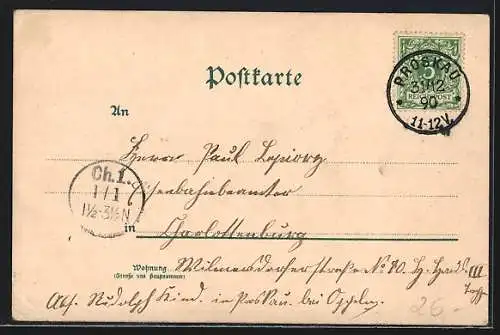 Postkarte
5
REICHSPOST
PROSKAU
31/12
90
11-12V.
An
Herrn Paul
Ch.1.
1/1
1½-3½N
Eisenbahnbeamter
in Charlottenburg
Wohnung
(Straße und Hausnummer)
Wilmersdorferstraße No 70. III
Abs. Rudolph Kind. in Proskau. bei Oppeln.
26.-